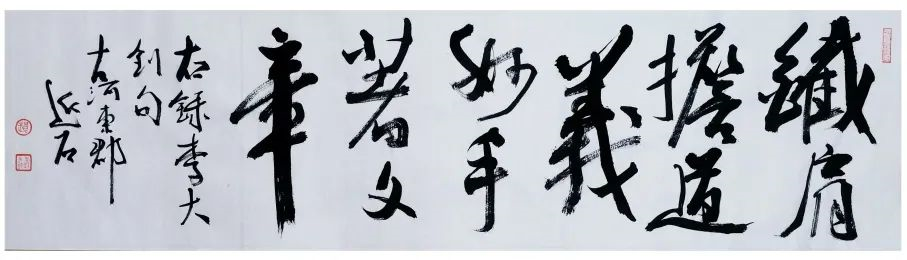 鐵肩
擔道
義
妙手
著文
章
右錄李大
釗句
古河東郡
石